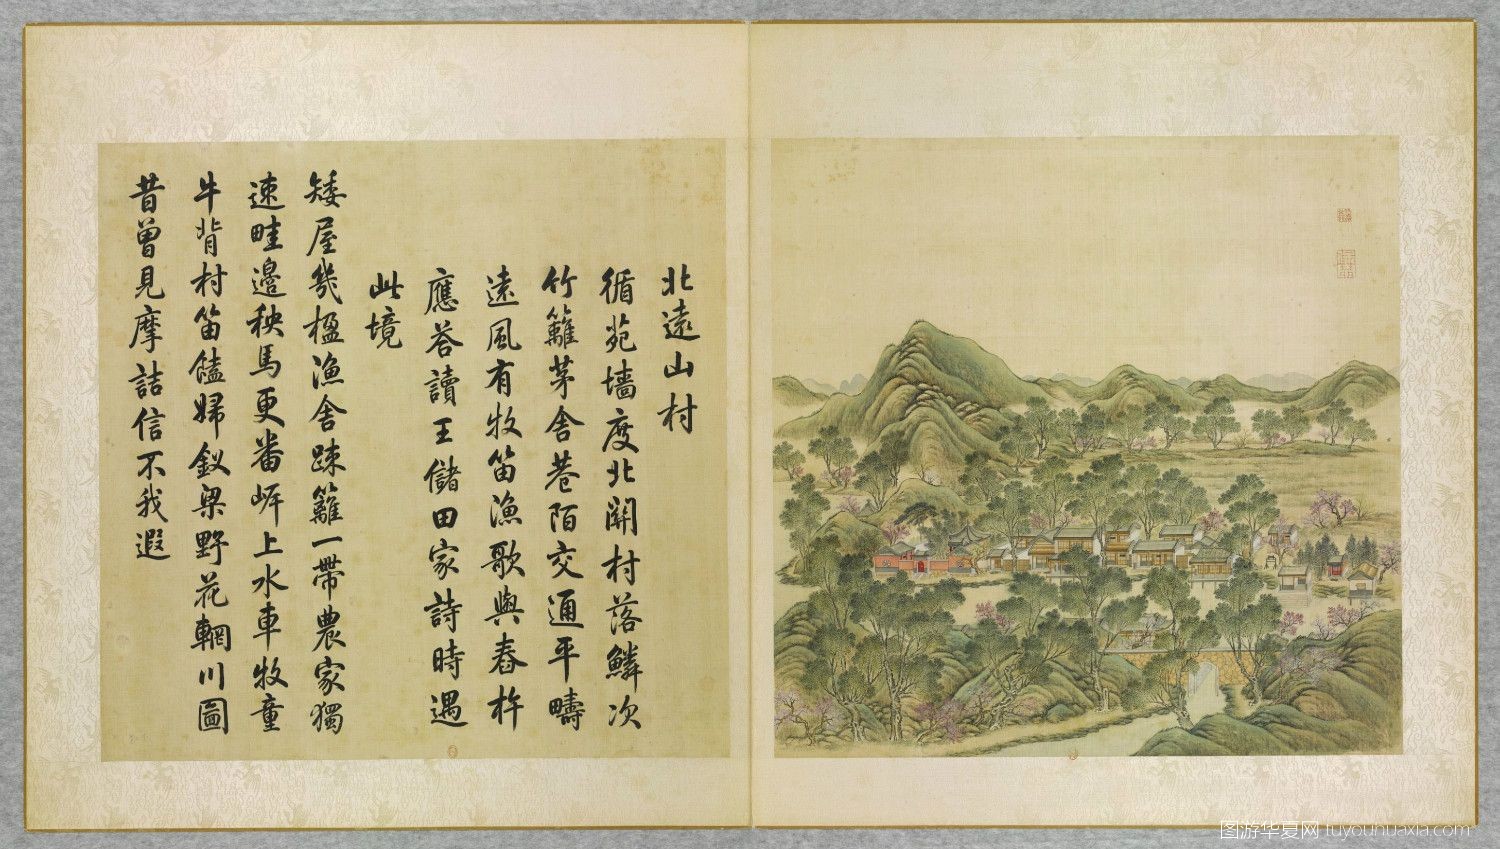 北遠山村
循苑墻度北關村落鱗次
竹籬茅舍巷陌交通平疇
遠風有牧笛漁歌與舂杵
應答讀王儲田家詩時遇
此境
矮屋幾楹漁舍踈籬一帶農家獨
速畦邊秧馬更番岸上水車牧童
牛背村笛饁婦釵梁野花輞川圖
昔曾見摩詰信不我遐
图游华夏网 tuyouhuaxia.com